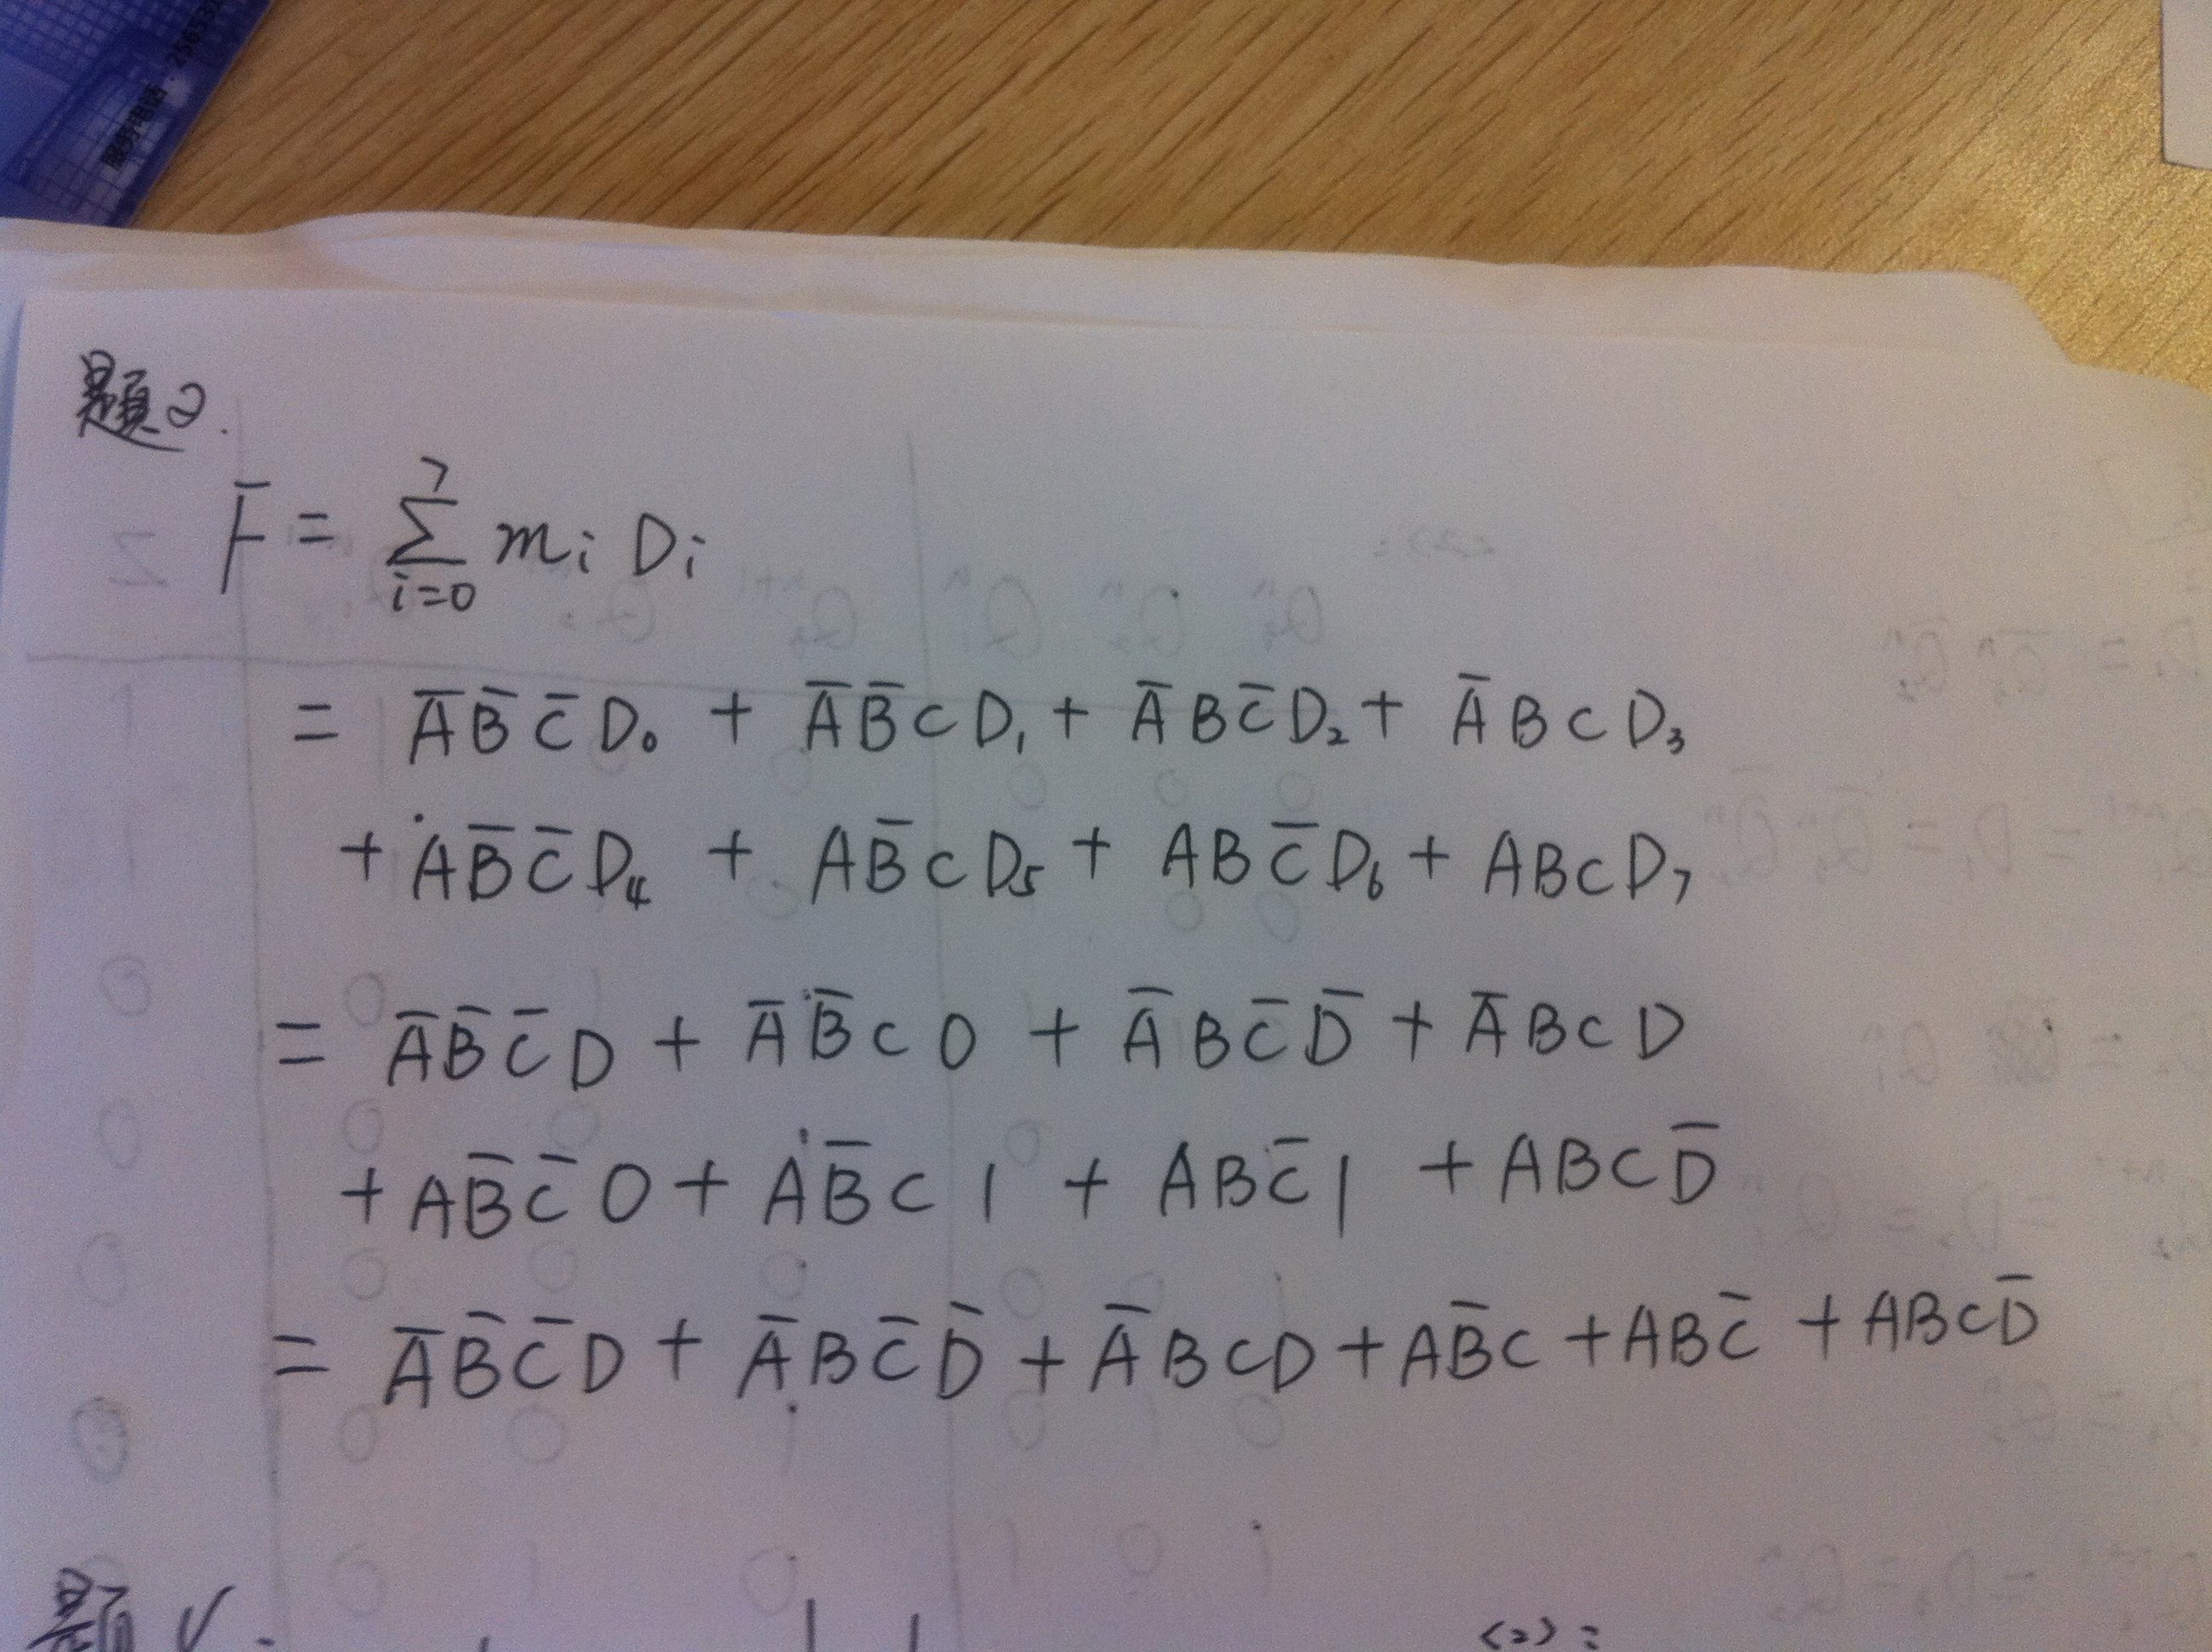 題2.
F = ∑_{i=0}^{7} mᵢ Dᵢ
= A̅ B̅ C̅ D₀ + A̅ B̅ C D₁ + A̅ B C̅ D₂ + A̅ B C D₃
+ A B̅ C̅ D₄ + A B̅ C D₅ + A B C̅ D₆ + A B C D₇
= A̅ B̅ C̅ D + A̅ B̅ C 0 + A̅ B C̅ D̅ + A̅ B C D
+ A B̅ C̅ 0 + A B̅ C 1 + A B C̅ 1 + A B C D̅
= A̅ B̅ C̅ D + A̅ B C̅ D̅ + A̅ B C D + A B̅ C + A B C̅ + A B C D̅
<2>: